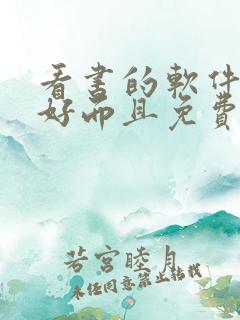 看書的軟件
好而且免費
若宮睦月
未经同意禁止转载